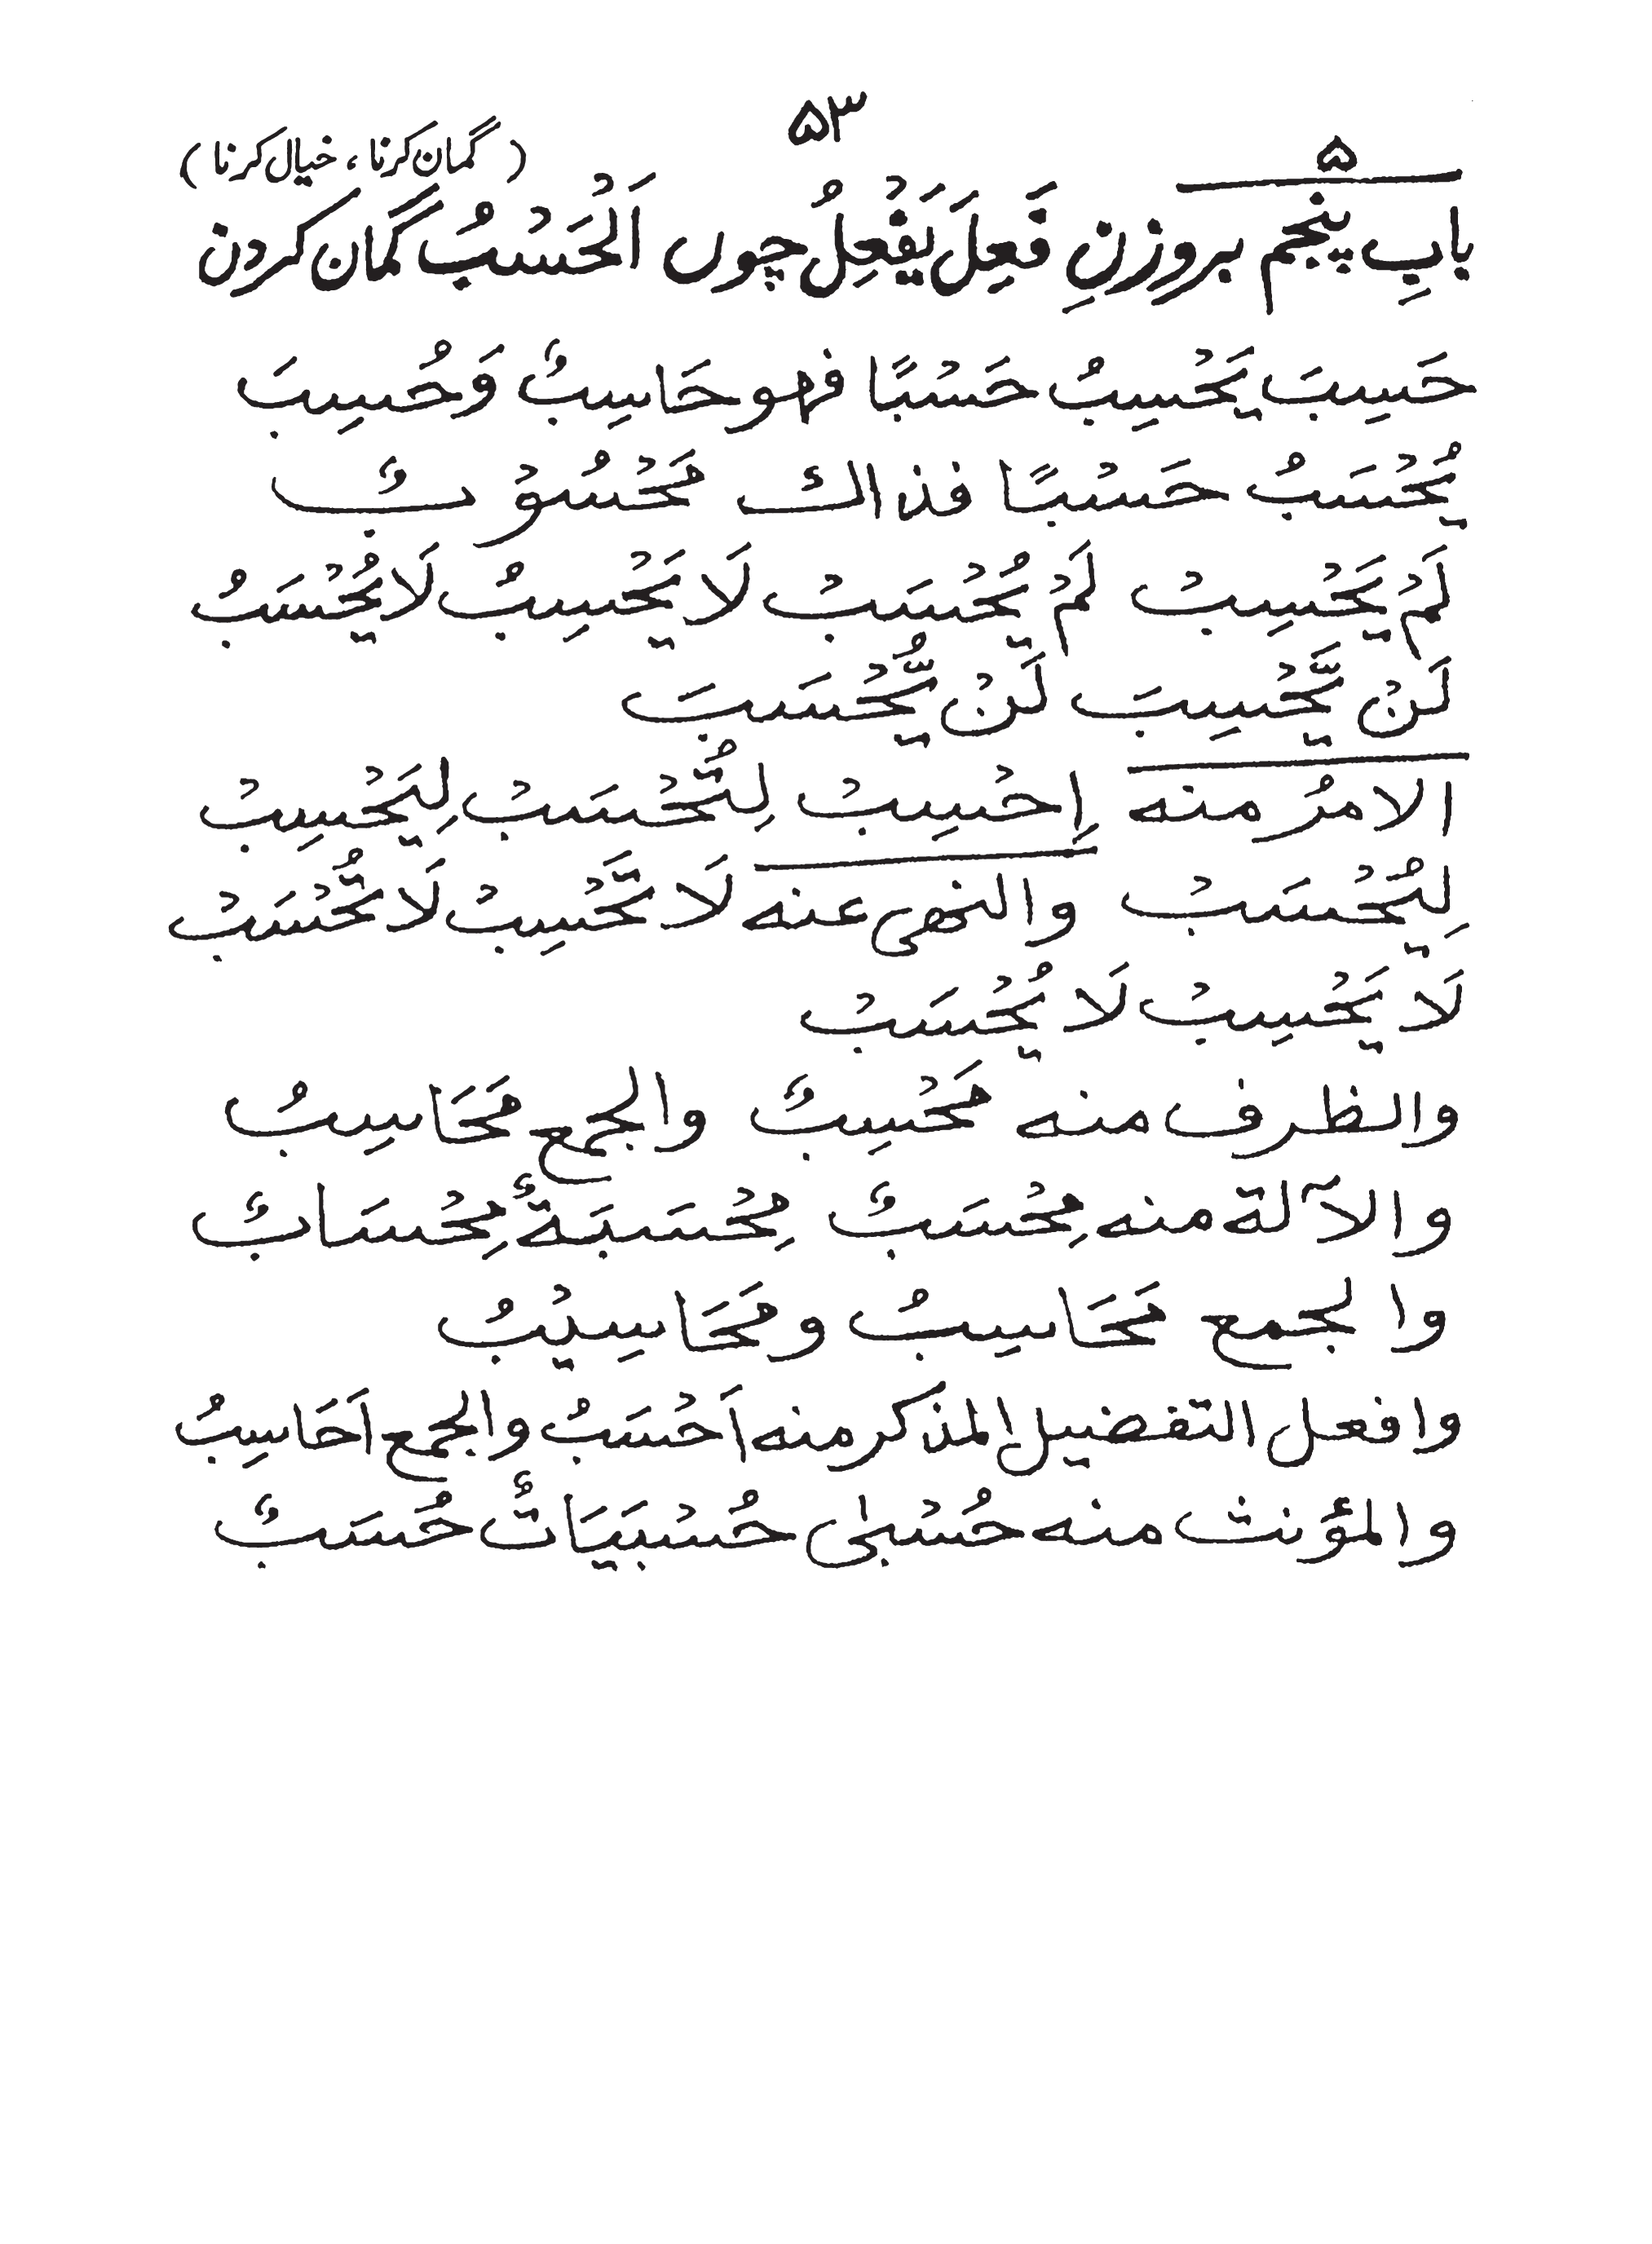 ۵۳
۵
( گمان کرنا ، خیال کرنا )
بابِ پنجم بروزنِ فَعِلَ یَفْعِلُ چوں اَلْحَسْبُ گمان کردن
حَسِبَ یَحْسِبُ حَسْبًا فهو حَاسِبٌ وَحُسِبَ
یُحْسَبُ حَسْبًا فذاك مَحْسُوْبٌ
لَمْ یَحْسِبْ لَمْ یُحْسَبْ لَا یَحْسِبُ لَا یُحْسَبُ
لَنْ یَّحْسِبَ لَنْ یُّحْسَبَ
الامرُ منه اِحْسِبْ لِتُحْسَبْ لِیَحْسِبْ
لِیُحْسَبْ والنهی عنه لَا تَحْسِبْ لَا تُحْسَبْ
لَا یَحْسِبْ لَا یُحْسَبْ
والظرف منه مَحْسِبٌ والجمع مَحَاسِبُ
والآلة منه مِحْسَبٌ مِحْسَبَةٌ مِحْسَابٌ
والجمع مَحَاسِبُ ومَحَاسِیْبُ
وافعل التفضیل المذکر منه اَحْسَبُ والجمع اَحَاسِبُ
والمؤنث منه حُسْبٰی حُسْبَیَاتٌ حُسَبٌ